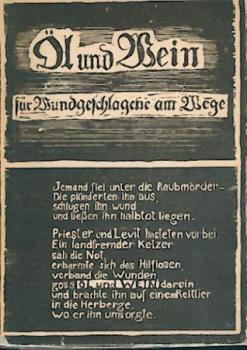 Öl und Wein
für Wundgeschlagene am Wege
Jemand fiel unter die Raubmörder-
Die plünderten ihn aus,
schlugen ihn wund
und ließen ihn halbtot liegen.
Priester und Levit hasteten vorbei.
Ein landfremder Ketzer
sah die Not,
erbarmte sich des Hilflosen,
verband die Wunden
goss ÖL und WEIN darein
und brachte ihn auf einem Reittier
in die Herberge,
wo er ihn umsorgte.